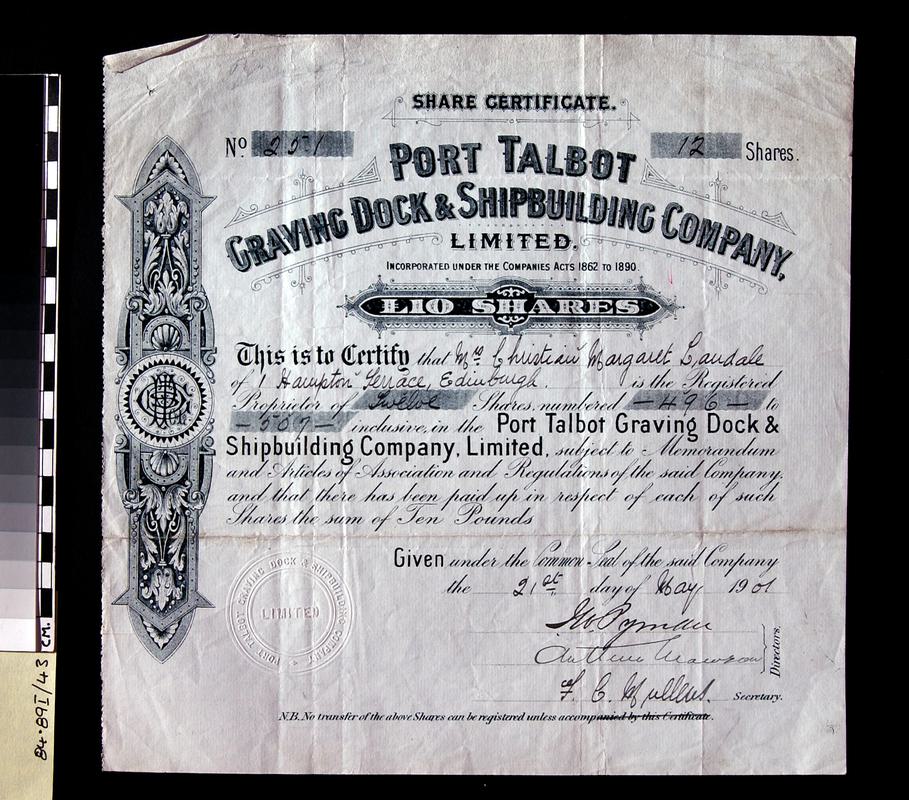 SHARE CERTIFICATE.
No 251 12 Shares.
PORT TALBOT
GRAVING DOCK & SHIPBUILDING COMPANY,
LIMITED.
INCORPORATED UNDER THE COMPANIES ACTS 1862 TO 1890.
£10 SHARES
This is to Certify that Mrs Christian Margaret Landale
of 1 Hampton Terrace, Edinburgh. is the Registered
Proprietor of Twelve Shares, numbered — 496 — to
— 507 — inclusive, in the Port Talbot Graving Dock &
Shipbuilding Company, Limited, subject to Memorandum
and Articles of Association and Regulations of the said Company,
and that there has been paid up in respect of each of such
Shares the sum of Ten Pounds
Given under the Common Seal of the said Company
the 21st day of May 1901
PORT TALBOT GRAVING DOCK & SHIPBUILDING COMPANY
LIMITED
Pyman
Arthur
Directors.
F. C. Mullens. Secretary.
N.B. No transfer of the above Shares can be registered unless accompanied by this Certificate.
CM.
84.89I/43